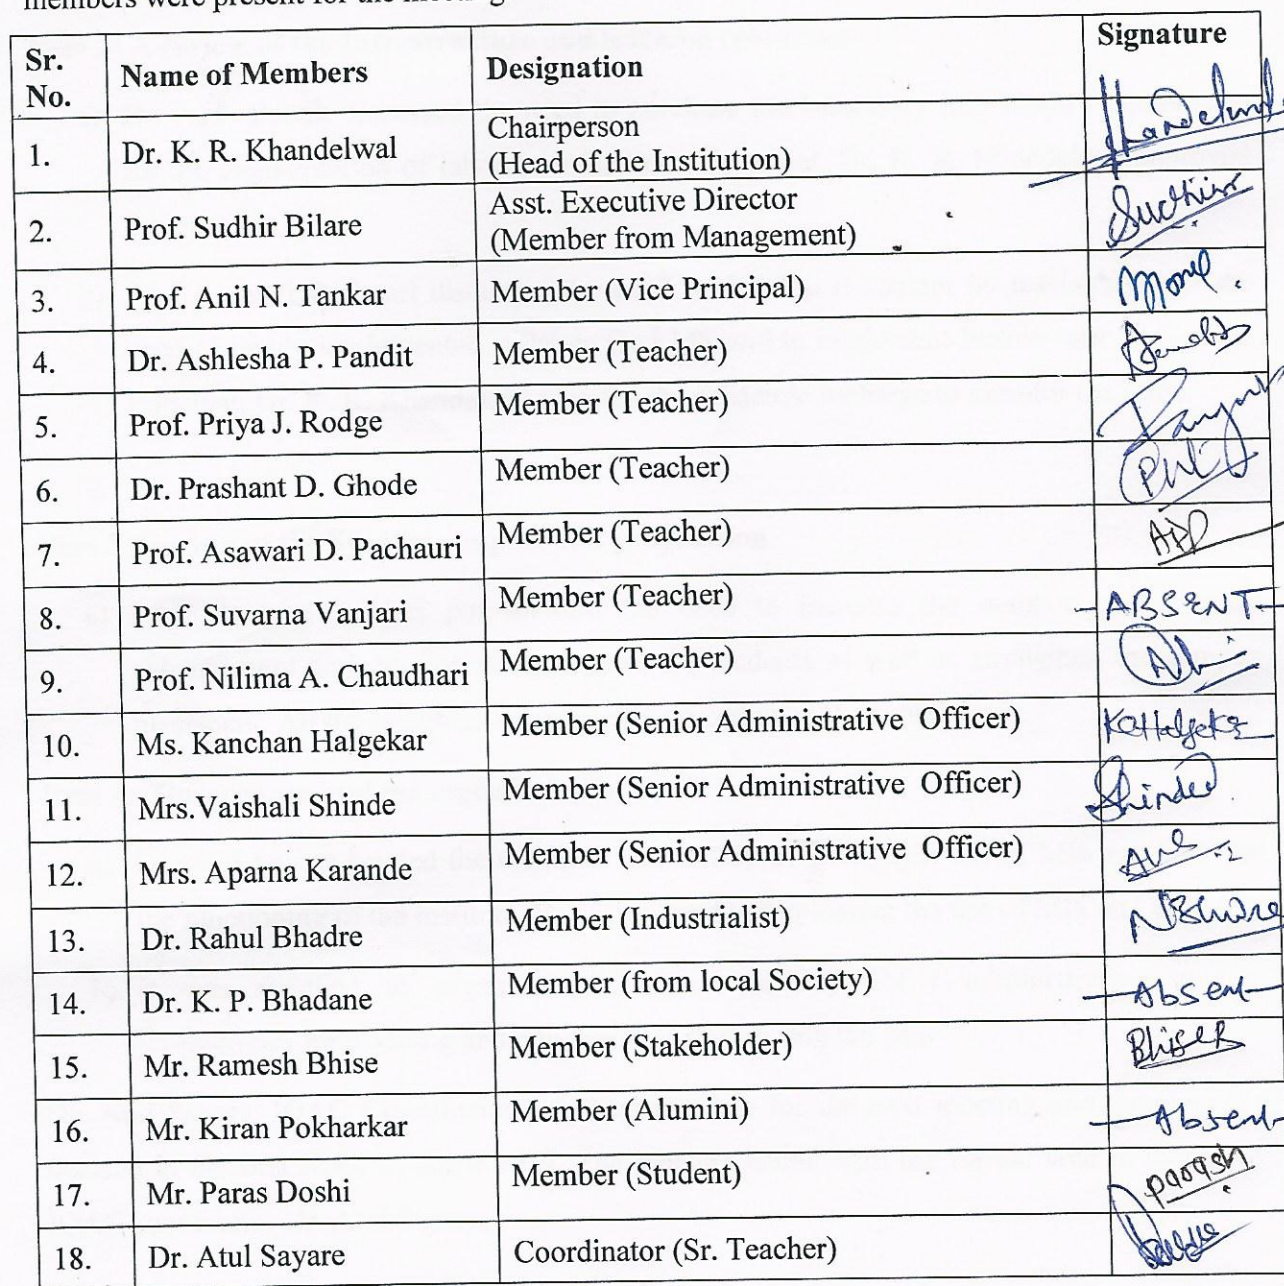 members were present for the meeting
Sr. No. Name of Members Designation Signature
1. Dr. K. R. Khandelwal Chairperson (Head of the Institution) Khandelwal
2. Prof. Sudhir Bilare Asst. Executive Director (Member from Management) Sudhir
3. Prof. Anil N. Tankar Member (Vice Principal)
4. Dr. Ashlesha P. Pandit Member (Teacher)
5. Prof. Priya J. Rodge Member (Teacher)
6. Dr. Prashant D. Ghode Member (Teacher)
7. Prof. Asawari D. Pachauri Member (Teacher) ADP
8. Prof. Suvarna Vanjari Member (Teacher) - ABSENT -
9. Prof. Nilima A. Chaudhari Member (Teacher)
10. Ms. Kanchan Halgekar Member (Senior Administrative Officer) KHalgekar
11. Mrs.Vaishali Shinde Member (Senior Administrative Officer) Shinde
12. Mrs. Aparna Karande Member (Senior Administrative Officer)
13. Dr. Rahul Bhadre Member (Industrialist)
14. Dr. K. P. Bhadane Member (from local Society) - Absent -
15. Mr. Ramesh Bhise Member (Stakeholder) BhiseR
16. Mr. Kiran Pokharkar Member (Alumini) - Absent -
17. Mr. Paras Doshi Member (Student)
18. Dr. Atul Sayare Coordinator (Sr. Teacher)